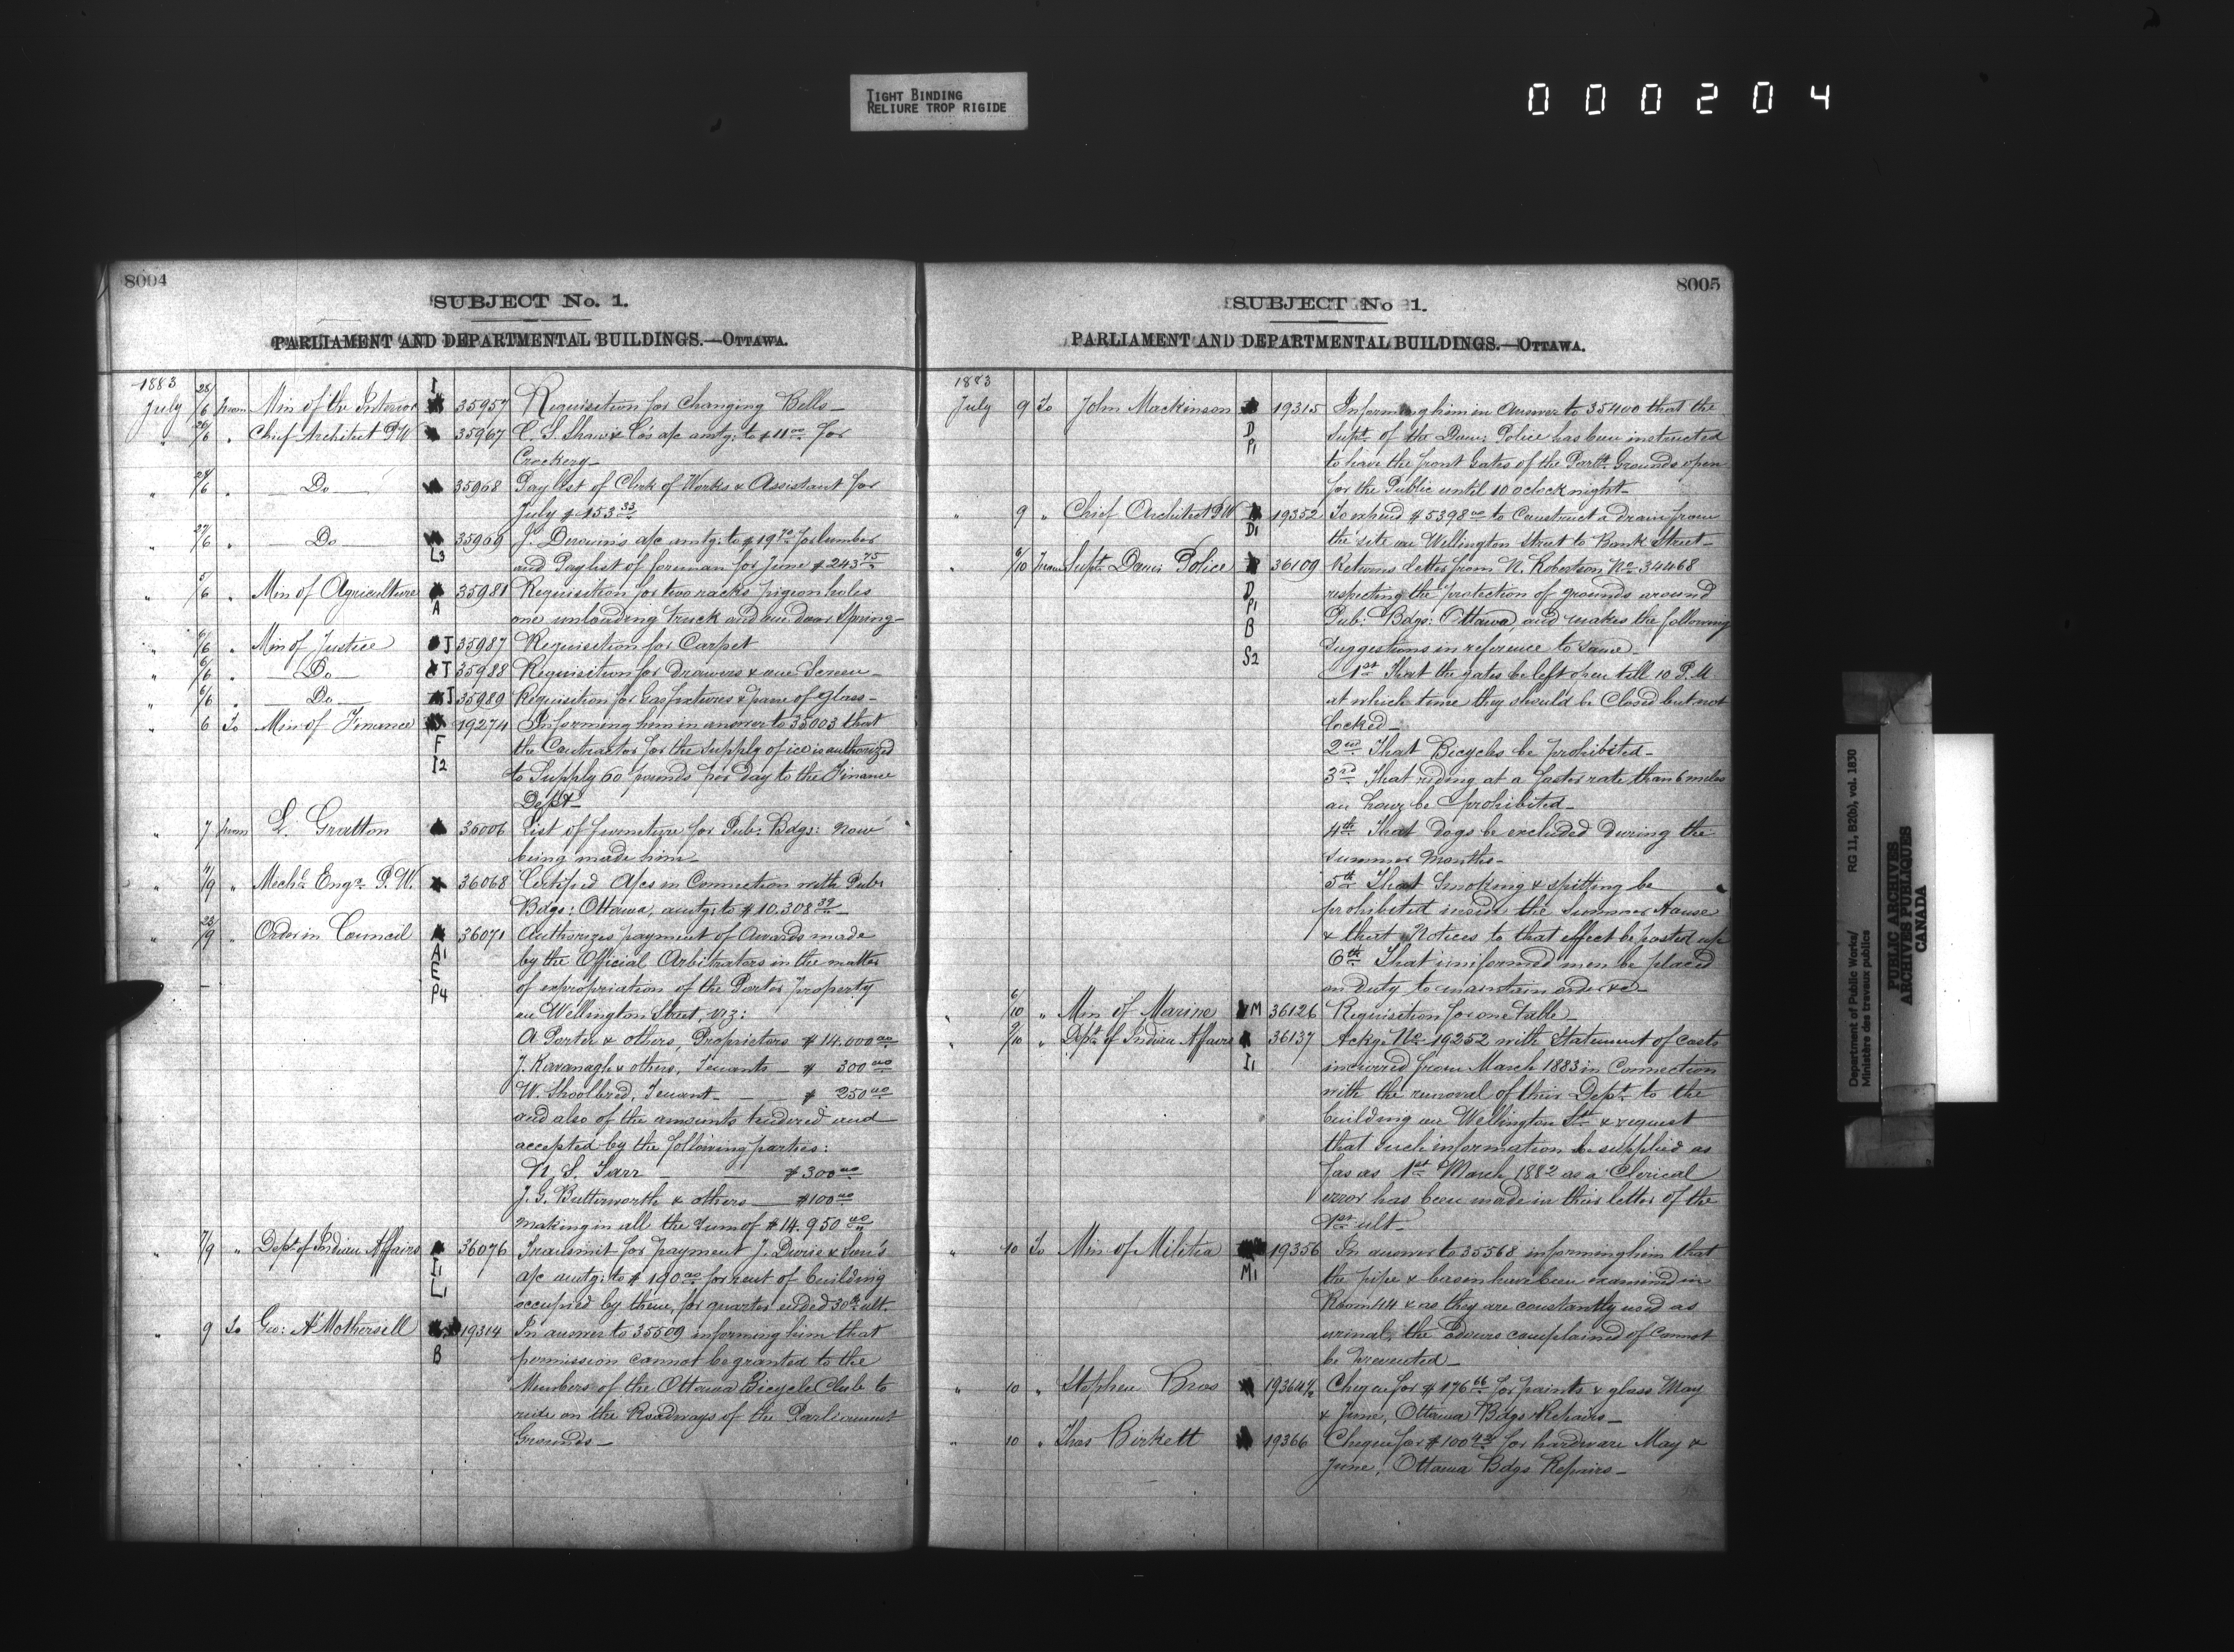 TIGHT BINDING
RELIURE TROP RIGIDE
000204
8004
SUBJECT No. 1.
PARLIAMENT AND DEPARTMENTAL BUILDINGS.—OTTAWA.
1883
July 28/6 from Min of the Interior I 35957 Requisition for Changing Bells—
" 26/6 " Chief Architect P.W. 35967 C. S. Shaw & Co's a/c amtg: to $11.00 for
Crockery—
" 28/6 " Do 35968 Pay list of Clerk of Works & Assistant for
July $153.33
" 27/6 " Do L3 35969 a/c amtg: to $19.70 for lumber
and Paylist of foreman for June $243.75
" 5/6 " Min of Agriculture A 35981 Requisition for two racks pigeon holes
one unloading truck and one door Spring—
" 6/6 " Min of Justice J 35987 Requisition for Carpet
" 6/6 " Do J 35988 Requisition for Drawers & one Screen—
" 6/6 " Do J 35989 Requisition for Gas fixtures & pane of glass—
" 6 To Min of Finance 19274 Informing him in answer to 35003 that
F the Contractor for the supply of ice is authorized
I2 to Supply 60 pounds per day to the Finance
Dept—
" 7 from L. Gratton 36006 List of furniture for Pub: Bdgs: now
being made him—
" 4/9 " Mechl. Engr. P.W. 36068 Certified A/cs in Connection with Pub:
Bdgs: Ottawa, amtg: to $10.308.39—
" 23/9 " Order in Council 36071 Authorizes payment of Awards made
A1 by the Official Arbitrators in the matter
E of expropriation of the Porter property
P4 on Wellington Street, viz:
A Porter & others, Proprietors $14.000.00
J. Kavanagh & others, Tenants— $ 300.00
W. Shoolbred, Tenant— $ 250.00
and also of the amounts tendered and
accepted by the following parties:
N. S. Tarr $300.00
J. G. Butterworth & others— $100.00
Making in all the Sum of $14.950.00
" 7/9 " Dept. of Indian Affairs 36076 Transmit for payment J. Durie & Son's
I1 a/c amtg: to $190.00 for rent of building
L1 occupied by them, for quarter ended 30th ult.
" 9 To Geo: A Mothersell 19314 In answer to 35509 informing him that
B permission cannot be granted to the
Members of the Ottawa Bicycle Club to
ride on the Roadways of the Parliament
Grounds—
8005
SUBJECT No 1.
PARLIAMENT AND DEPARTMENTAL BUILDINGS.—OTTAWA.
1883
July 9 To John Mackinson 19315 Informing him in Answer to 35400 that the
D Supt. of the Dom: Police has been instructed
P1 to have the front Gates of the Parlt. Grounds open
for the Public until 10 oclock night—
" 9 " Chief Architect P.W. 19352 To expend $5398.00 to Construct a drain from
D1 the site on Wellington Street to Bank Street—
" 6/10 From Supt. Domi: Police 36109 Returns letter from N. Robertson No. 34468
D respecting the protection of grounds around
P1 Pub: Bdgs: Ottawa, and makes the following
B
S2 Suggestions in reference to same—
1st That the gates be left open till 10 P.M.
at which time they should be Closed but not
locked—
2nd That Bicycles be prohibited—
3rd That riding at a faster rate than 6 miles
an hour be prohibited—
4th That Dogs be excluded During the
summer months—
5th That Smoking & spitting be
prohibited inside the Summer House
& that Notices to that effect be posted up
6th That uniformed men be placed
on Duty to maintain order &c—
" 6/10 " Min of Marine M 36126 Requisition for one Table—
" 9/10 " Dept. of Indian Affairs 36137 Ackg. No. 19252 with Statement of Costs
I1 incurred from March 1883 in Connection
with the removal of their Dept. to the
building on Wellington St. & request
that such information be supplied as
far as 1st March 1882 as a Clerical
error has been made in their letter of the
1st ult—
" 10 To Min of Militia 19356 In answer to 35568 informing him that
M1 the pipe & basin have been examined in
Room 44 & as they are constantly used as
urinal, the odours complained of Cannot
be prevented—
" 10 " Stephen Bros 19364½ Cheque for $176.66 for paints & glass May
& June, Ottawa Bdgs Repairs—
" 10 " Thos Birkett 19366 Cheque for $100.43 for hardware May &
June, Ottawa Bdgs Repairs—
Department of Public Works/ RG 11, B2(b), vol. 1830
Ministère des travaux publics
PUBLIC ARCHIVES
ARCHIVES PUBLIQUES
CANADA